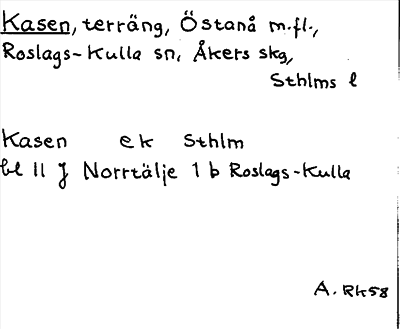 Kasen, terräng, Östanå m.fl.,
Roslags-Kulla sn, Åkers skg,
Sthlms l
Kasen ek Sthlm
bl 11 J Norrtälje 1 b Roslags-Kulla
A. Rk 58